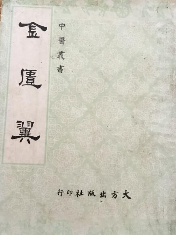 中醫叢書
金匱翼
大方出版社印行